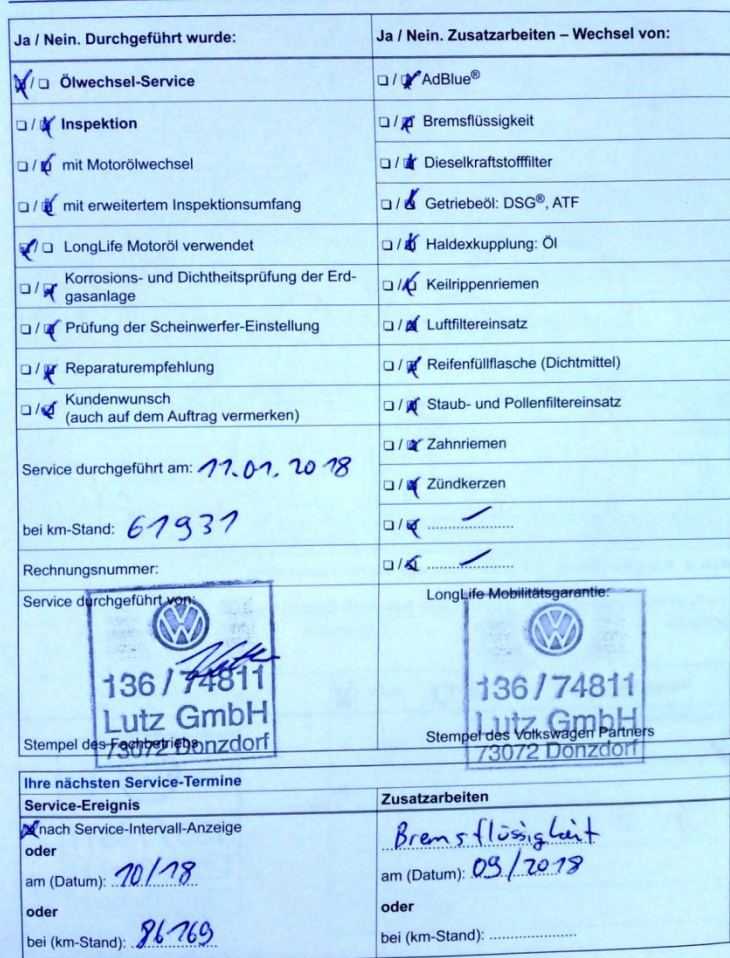 Ja / Nein. Durchgeführt wurde:
Ja / Nein. Zusatzarbeiten – Wechsel von:
/ Ölwechsel-Service
/ AdBlue®
/ Inspektion
/ Bremsflüssigkeit
/ mit Motorölwechsel
/ Dieselkraftstofffilter
/ mit erweitertem Inspektionsumfang
/ Getriebeöl: DSG®, ATF
/ LongLife Motoröl verwendet
/ Haldexkupplung: Öl
/ Korrosions- und Dichtheitsprüfung der Erd-
gasanlage
/ Keilrippenriemen
/ Prüfung der Scheinwerfer-Einstellung
/ Luftfiltereinsatz
/ Reparaturempfehlung
/ Reifenfüllflasche (Dichtmittel)
/ Kundenwunsch
(auch auf dem Auftrag vermerken)
/ Staub- und Pollenfiltereinsatz
/ Zahnriemen
Service durchgeführt am: 11.01.2018
/ Zündkerzen
bei km-Stand: 61931
/ ....................
/ ....................
Rechnungsnummer:
Service durchgeführt von:
VW
136/74811
Lutz GmbH
73072 Donzdorf
Stempel des Fachbetriebs
LongLife Mobilitätsgarantie:
VW
136/74811
Lutz GmbH
73072 Donzdorf
Stempel des Volkswagen Partners
Ihre nächsten Service-Termine
Service-Ereignis
Zusatzarbeiten
nach Service-Intervall-Anzeige
oder
am (Datum): 10/18
oder
bei (km-Stand): 86169
Bremsflüssigkeit
am (Datum): 09/2018
oder
bei (km-Stand): ....................